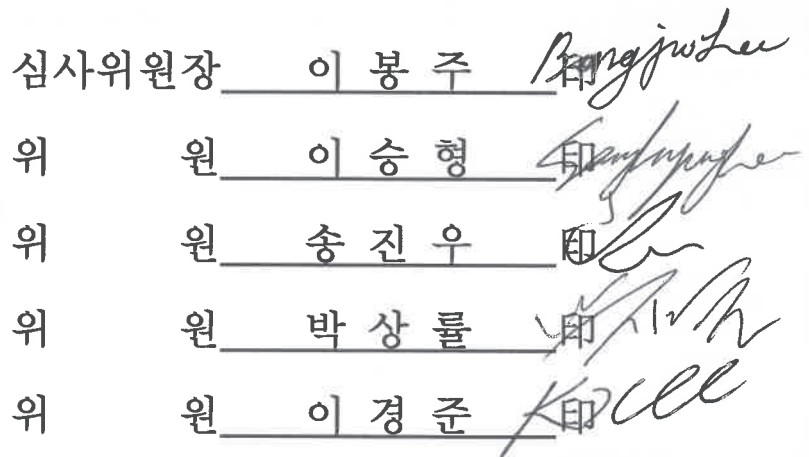 심사위원장 이 봉 주 印 Bongju Lee
위 원 이 승 형 印
위 원 송 진 우 印
위 원 박 상 률 印
위 원 이 경 준 印 KJ Lee